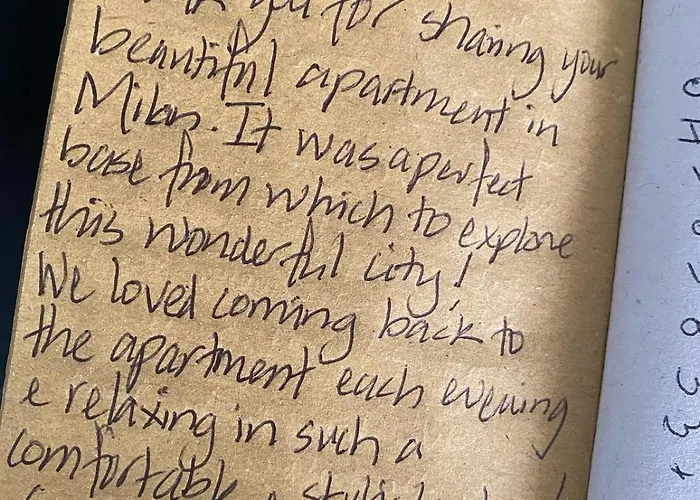 you for sharing your
beautiful apartment in
Milan. It was a perfect
base from which to explore
this wonderful city!
We loved coming back to
the apartment each evening
e relaxing in such a
comfortable